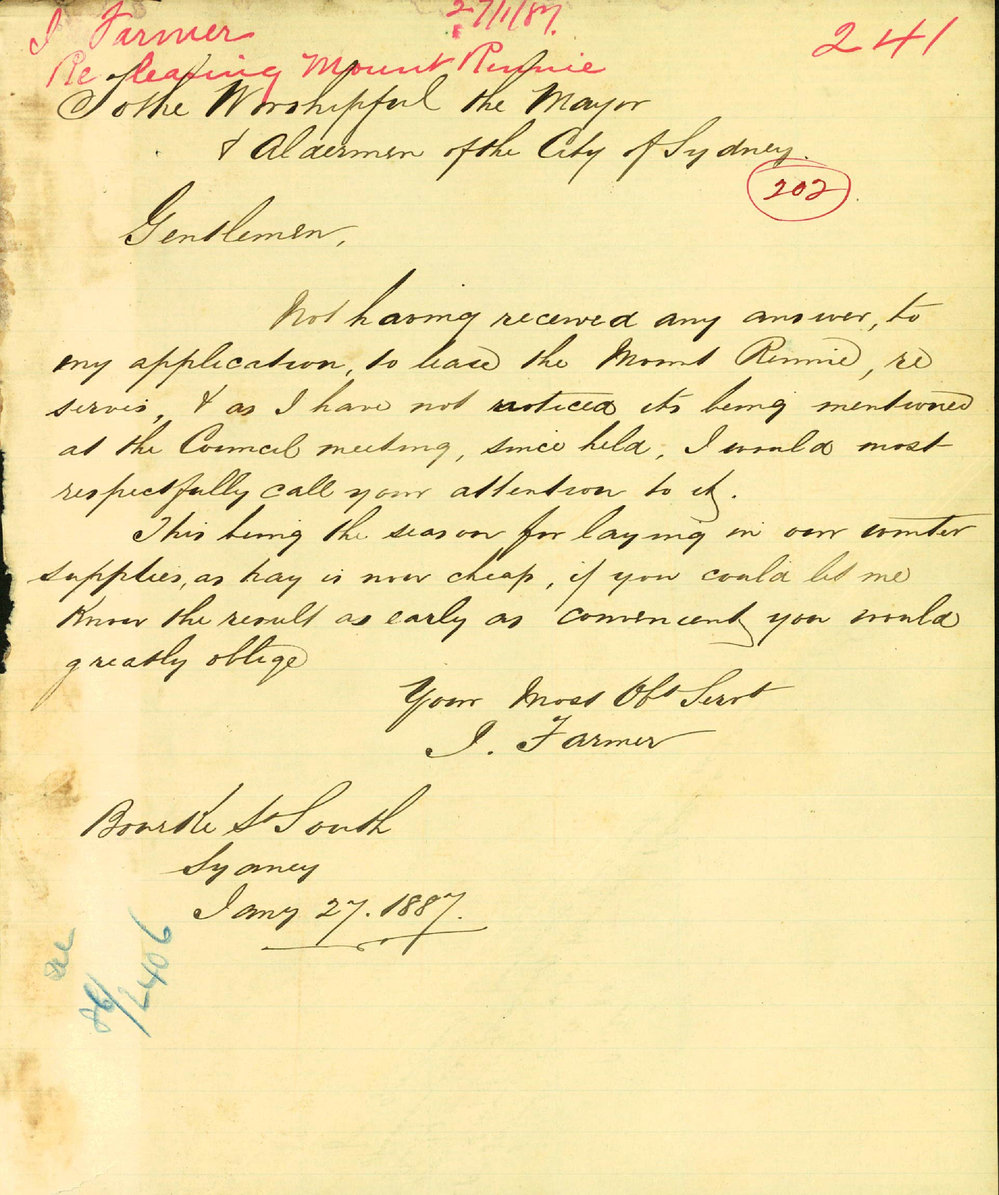 I Farmer
27/1/87.
241
Re leasing Mount Rennie
To the Worshipful the Mayor
& Aldermen of the City of Sydney.
202
Gentlemen,
Not having received any answer, to
my application, to lease the Mount Rennie, re
serves, & as I have not noticed its being mentioned
at the Council meeting, since held, I would most
respectfully call your attention to it.
This being the season for laying in our winter
supplies, as hay is now cheap, if you could let me
know the result as early as convenient you would
greatly oblige
Your Most Obt Servt
I. Farmer
Bourke St South
Sydney
Jany 27. 1887.
86/2406